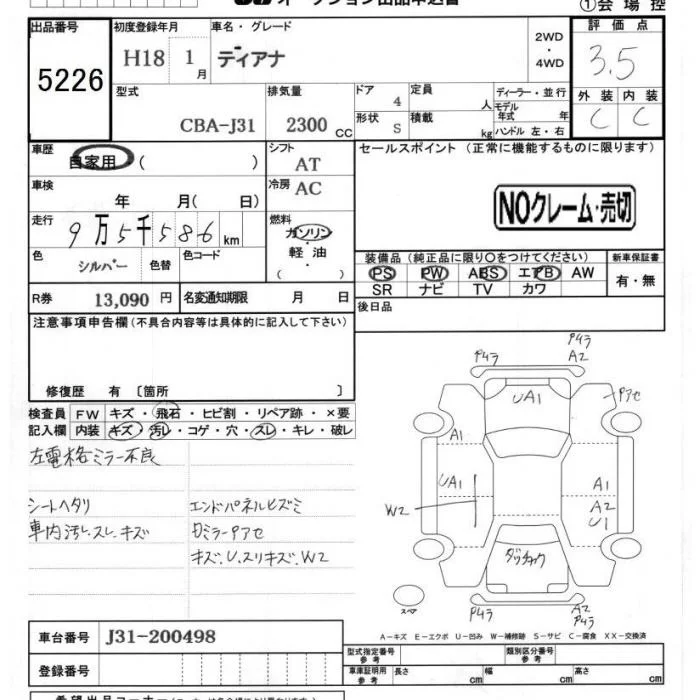 オークション出品申込書
①会場控
出品番号
5226
初度登録年月
H18 1月
車名・グレード
ティアナ
2WD
・
4WD
評価点
3.5
型式
CBA-J31
排気量
2300 CC
ドア 4
形状 S
定員 人
積載 kg
ディーラー・並行
モデル年式 年
ハンドル 左・右
外装 内装
C C
車歴
自家用 ( )
シフト
AT
セールスポイント (正常に機能するものに限ります)
車検
年 月( 日)
冷房
AC
NOクレーム・売切
走行
9万5千586km
燃料
ガソリン
軽・油
( ・ )
色
シルバー
色替
色コード
装備品 (純正品に限り○をつけてください)
PS PW ABS エアB AW
SR ナビ TV カワ
新車保証書
有・無
R券 13,090円
名変通知期限 月 日
後日品
注意事項申告欄(不具合内容等は具体的に記入して下さい)
修復歴 有 〔箇所 〕
検査員記入欄
FW キズ・飛石・ヒビ割・リペア跡・×要
内装 キズ・汚レ・コゲ・穴・スレ・キレ・破レ
左電格ミラー不良
シートヘタリ
車内汚レ.スレ.キズ
エンドパネルヒズミ
Dミラーアセ
キズ.U.スリキズ.W2
P4ラ
P4ラ
A2
UA1
Pアセ
A1
UA1
W2
A1
A2
U1
ダッチャク
P4ラ
A2
P4ラ
スペア
A－キズ E－エクボ U－凹み W－補修跡 S－サビ C－腐食 XX－交換済
車台番号 J31-200498
登録番号
型式指定番号 参考
類別区分番号 参考
車庫証明用 参考
長さ cm
幅 cm
高さ cm